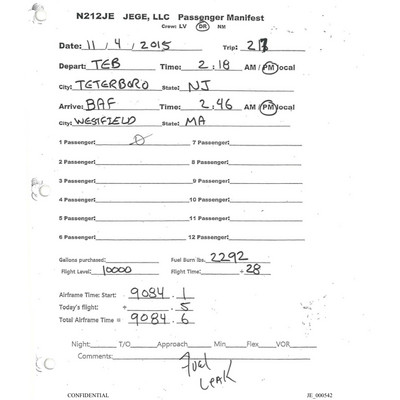 N212JE JEGE, LLC Passenger Manifest
Crew: LV DR NM
Date: 11/4/2015 Trip: 213
Depart: TEB Time: 2:18 AM / PM local
City: TETERBORO State: NJ
Arrive: BAF Time: 2:46 AM / PM local
City: WESTFIELD State: MA
1 Passenger: 0 7 Passenger:
2 Passenger: 8 Passenger:
3 Passenger: 9 Passenger:
4 Passenger: 10 Passenger:
5 Passenger: 11 Passenger:
6 Passenger: 12 Passenger:
Gallons purchased: Fuel Burn lbs. 2292
Flight Level: 10000 Flight Time: + 28
Airframe Time: Start: 9084 . 1
Today's flight: + . 5
Total Airframe Time = 9084 . 6
Night: T/O Approach Min Flex VOR
Comments: FUEL
LEAK
CONFIDENTIAL JE_000542